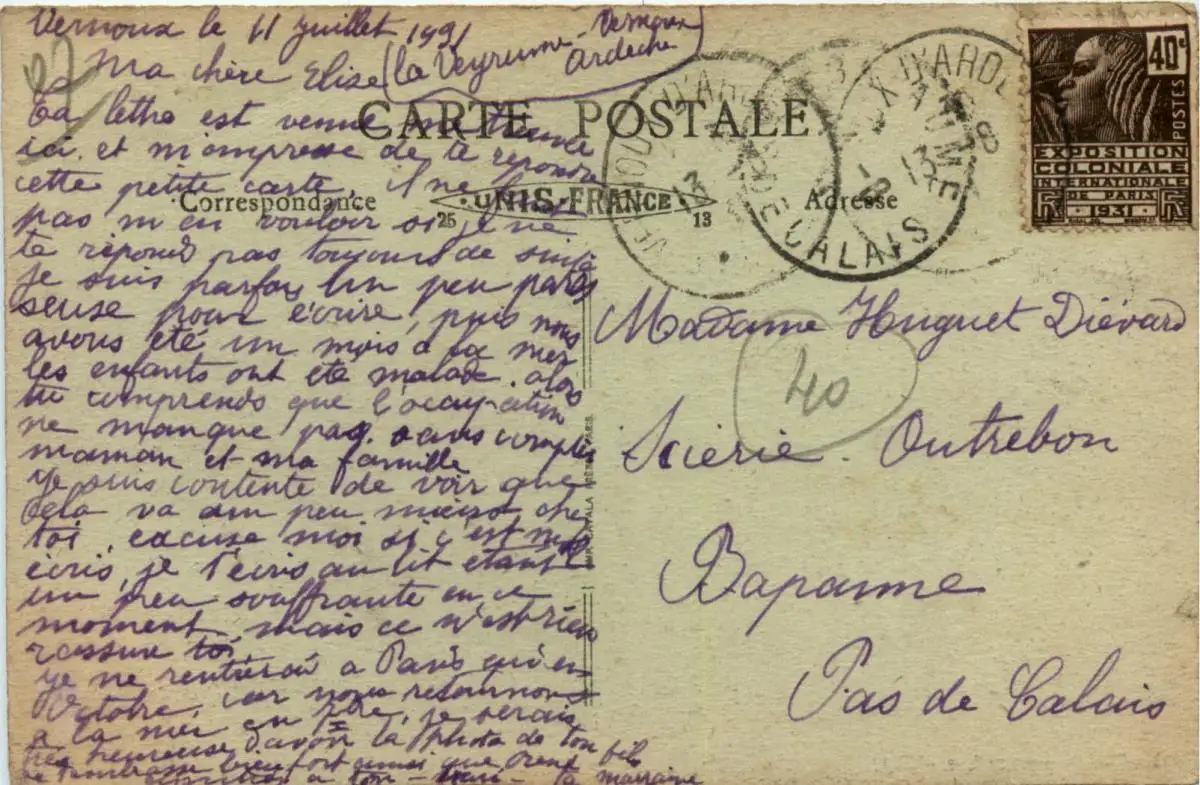 Vernoux le 11 juillet 1931
(La Veyrume - Vernoux
Ardèche
Ma chère Elise
Ta lettre est venue me trouver
ici. et m'empresse de te repondre
cette petite carte, il ne
pas m'en vouloir si je ne
te répond pas toujours de suite
je suis parfois un peu pares
seuse pour écrire, puis nous
avons été un mois a la mer
les enfants ont été malade. alors
tu comprends que l'occupation
ne manque pas. sans compter
maman et ma famille
je suis contente de voir que
cela va un peu mieux chez
toi, excuse moi si c'est mal
écris, je t'ecris au lit étant
un peu souffrante en ce
moment, mais ce n'est rien
rassure toi.
je ne rentrerai a Paris qu'en
Octobre, car nous retournons
a la mer en , je serais
très heureuse d'avoir la photo de ton fils
je t'embrasse bien fort ainsi que
a ton - - ta marraine
CARTE POSTALE
Correspondance
25 UNIS-FRANCE 13
Adresse
IMP. CATALA FRÈRES PARIS
VERNOUX D'ARDÈCHE
13
CALAIS
40c
POSTES
EXPOSITION
COLONIALE
INTERNATIONALE
DE PARIS
1931
Madame Huguet Diévard
40
Scierie Outrebon
Bapaume
Pas de Calais